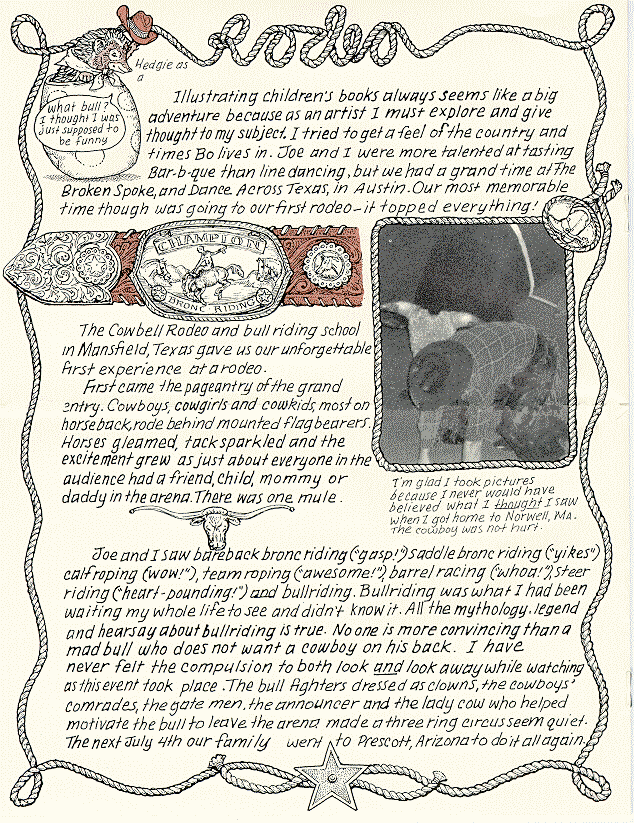 rodeo
Hedgie as
a
what bull?
I thought I was
just supposed to
be funny
Illustrating children's books always seems like a big
adventure because as an artist I must explore and give
thought to my subject. I tried to get a feel of the country and
times Bo lives in. Joe and I were more talented at tasting
Bar-b-que than line dancing, but we had a grand time at The
Broken Spoke, and Dance Across Texas, in Austin. Our most memorable
time though was going to our first rodeo - it topped everything!
CHAMPION
BRONC RIDING
The Cowbell Rodeo and bull riding school
in Mansfield, Texas gave us our unforgettable
first experience at a rodeo.
First came the pageantry of the grand
entry. Cowboys, cowgirls and cowkids, most on
horseback, rode behind mounted flag bearers.
Horses gleamed, tack sparkled and the
excitement grew as just about everyone in the
audience had a friend, child, mommy or
daddy in the arena. There was one mule.
I'm glad I took pictures
because I never would have
believed what I thought I saw
when I got home to Norwell, MA.
The cowboy was not hurt.
Joe and I saw bareback bronc riding ("gasp!") saddle bronc riding ("yikes")
calf roping (wow!"), team roping ("awesome!"), barrel racing ("whoa!"), steer
riding ("heart-pounding!") and bullriding. Bullriding was what I had been
waiting my whole life to see and didn't know it. All the mythology, legend
and hearsay about bullriding is true. No one is more convincing than a
mad bull who does not want a cowboy on his back. I have
never felt the compulsion to both look and look away while watching
as this event took place. The bull fighters dressed as clowns, the cowboys'
comrades, the gate men, the announcer and the lady cow who helped
motivate the bull to leave the arena made a three ring circus seem quiet.
The next July 4th our family went to Prescott, Arizona to do it all again.